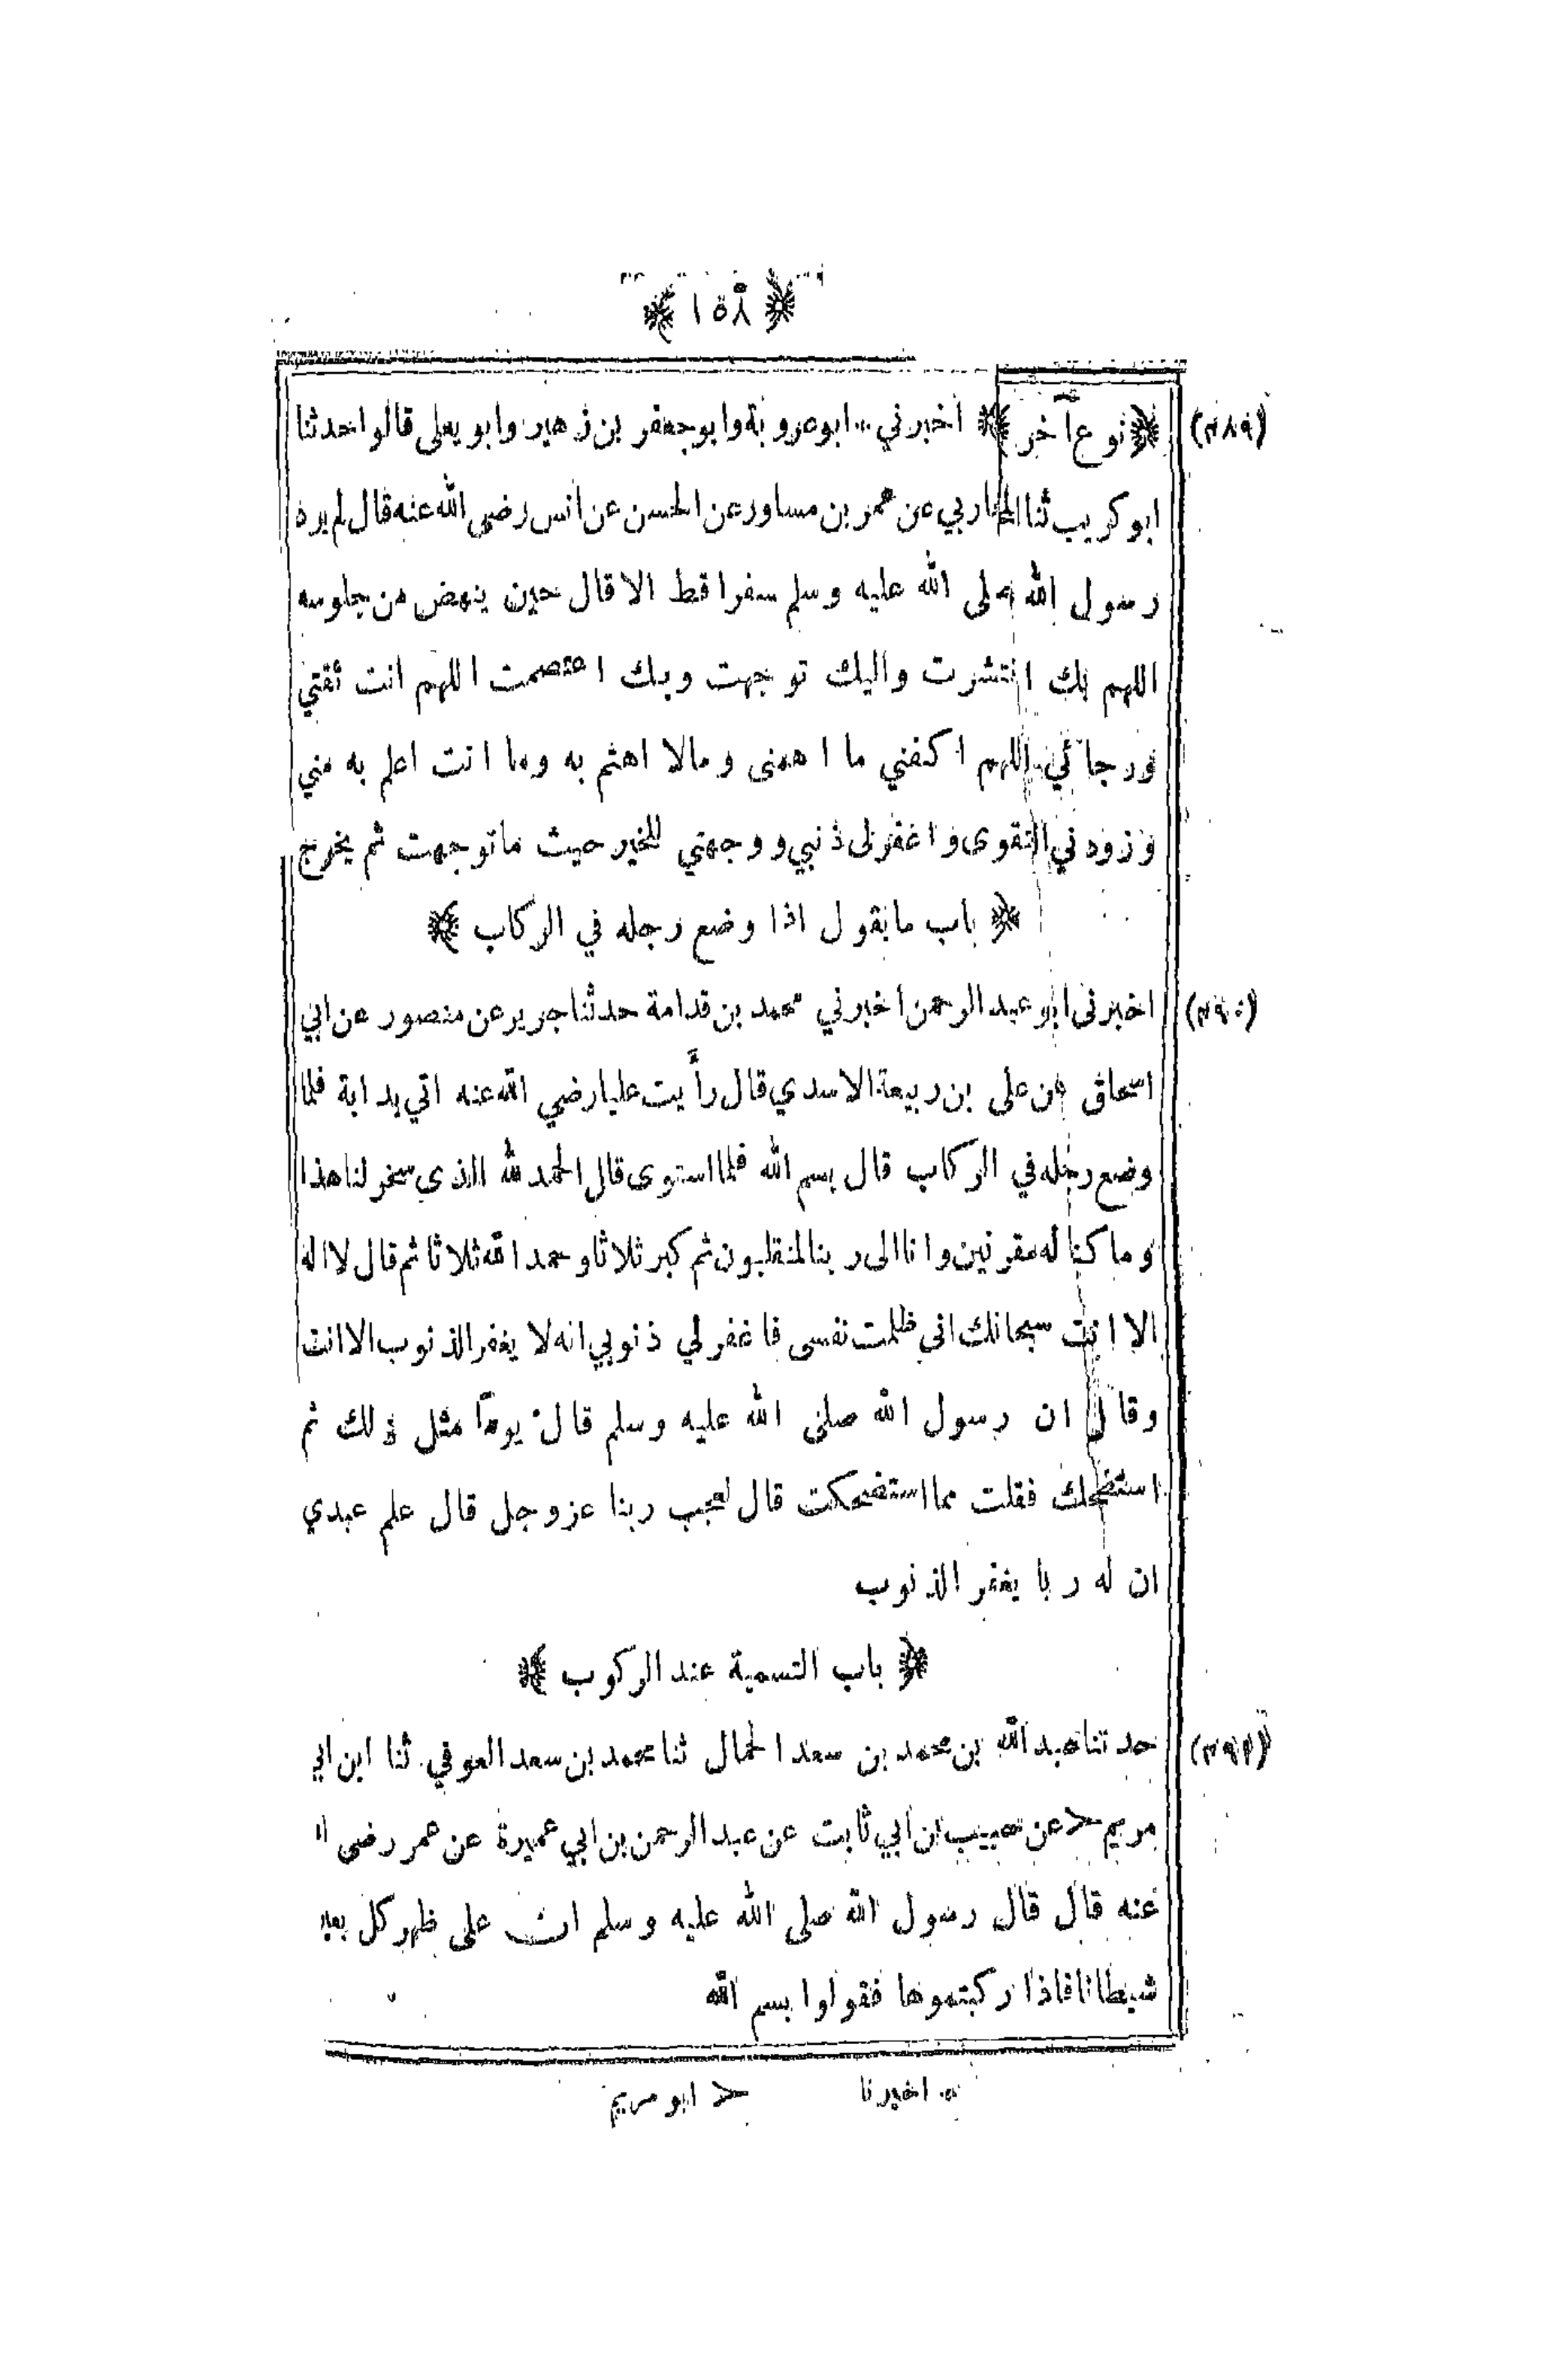 ﴿ ١٥٨ ﴾
(٤٨٩) ﴿ نوع آخر ﴾ اخبرني ابوعروبة وابوجعفر بن زهير وابويعلى قالوا حدثنا
ابوكريب ثنا المحاربي عن عمر بن مساور عن الحسن عن انس رضى الله عنه قال لم يرد
رسول الله صلى الله عليه وسلم سفرا قط الا قال حين ينهض من جلوسه
اللهم بك انتشرت واليك توجهت وبك اعتصمت اللهم انت ثقتي
ورجائي اللهم اكفني ما اهمنى ومالا اهتم به وما انت اعلم به مني
وزودني التقوى واغفرلى ذنبي ووجهني للخير حيث ماتوجهت ثم يخرج
﴿ باب مايقول اذا وضع رجله في الركاب ﴾
(٤٩٠) اخبرنى ابو عبد الرحمن اخبرني محمد بن قدامة حدثنا جرير عن منصور عن ابي
اسحاق عن على بن ربيعة الاسدي قال رأيت عليا رضي الله عنه اتي بدابة فلما
وضع رجله في الركاب قال بسم الله فلما استوى قال الحمد لله الذى سخر لنا هذا
وما كنا له مقرنين وانا الى ربنا لمنقلبون ثم كبر ثلاثا وحمد الله ثلاثا ثم قال لا اله
الا انت سبحانك انى ظلمت نفسى فاغفر لي ذنوبي انه لا يغفر الذنوب الا انت
وقال ان رسول الله صلى الله عليه وسلم قال يومًا مثل ذلك ثم
استضحك فقلت مما استضحكت قال لعجب ربنا عزوجل قال علم عبدي
ان له ربا يغفر الذنوب
﴿ باب التسمية عند الركوب ﴾
(٤٩١) حدثنا عبد الله بن محمد بن سعد الحمال ثنا محمد بن سعد العوفي ثنا ابن ابي
مريم > عن حبيب بن ابي ثابت عن عبد الرحمن بن ابي عميرة عن عمر رضى
عنه قال قال رسول الله صلى الله عليه وسلم ان على ظهر كل
شيطانا فاذا ركبتموها فقولوا بسم الله
اخبرنا > ابو مريم